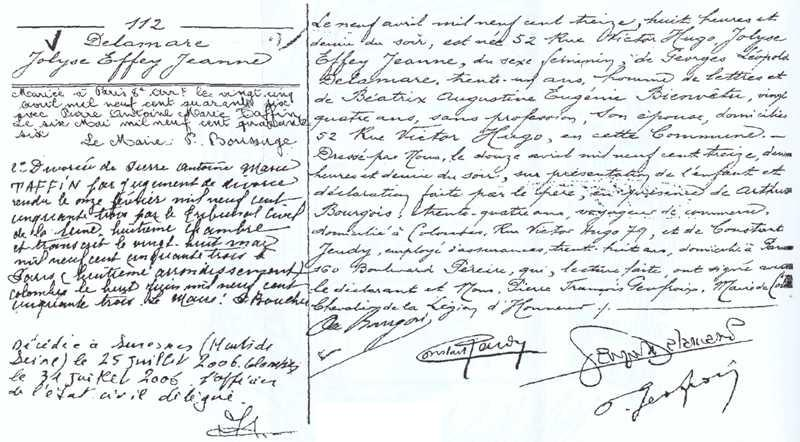 112
Delamare
Jolyse Effey Jeanne
Mariée à Paris 8e arrt le vingt cinq
avril mil neuf cent quarante six
avec Pierre Antoine Marie Taffin
Le six Mai mil neuf cent quarante
six
Le Maire P. Boussuge
2° Divorcée de Pierre Antoine Marie
TAFFIN par jugement de divorce
rendu le onze février mil neuf cent
cinquante trois par le tribunal civil
de la Seine, huitième chambre
et transcrit le vingt-huit mai
mil neuf cent cinquante trois à
Paris (huitième arrondissement)
Colombes le huit juin mil neuf cent
cinquante trois. Le Maire:
Décédée à Suresnes (Hauts de
Seine) le 25 juillet 2006. Colombes
le 31 juillet 2006 l'officier
de l'état civil délégué.
Le neuf avril mil neuf cent treize, huit heures et
demie du soir, est née 52 Rue Victor Hugo, Jolyse
Effey Jeanne, du sexe féminin, de Georges Léopold
Delamare, trente-un ans, homme de lettres et
de Béatrix Augustine Eugénie Bienvêtu, vingt
quatre ans, sans profession, son épouse, domiciliés
52 Rue Victor Hugo, en cette Commune. —
Dressé par Nous, le douze avril mil neuf cent treize, deux
heures et demie du soir, sur présentation de l'enfant et
déclaration faite par le père, en présence de Arthur
Bourgois, trente-quatre ans, voyageur de commerce,
domicilié à Colombes, Rue Victor Hugo 79, et de Constant
Jendry, employé d'assurances, trente-huit ans, domicilié à Paris
160 Boulevard Péreire, qui, lecture faite, ont signé avec
le déclarant et Nous, Pierre François Geofroix, Maire de Col
Chevalier de la Légion d'Honneur ./.
Bourgois
Constant Jendry
Georges Delamare
P. Geofroix